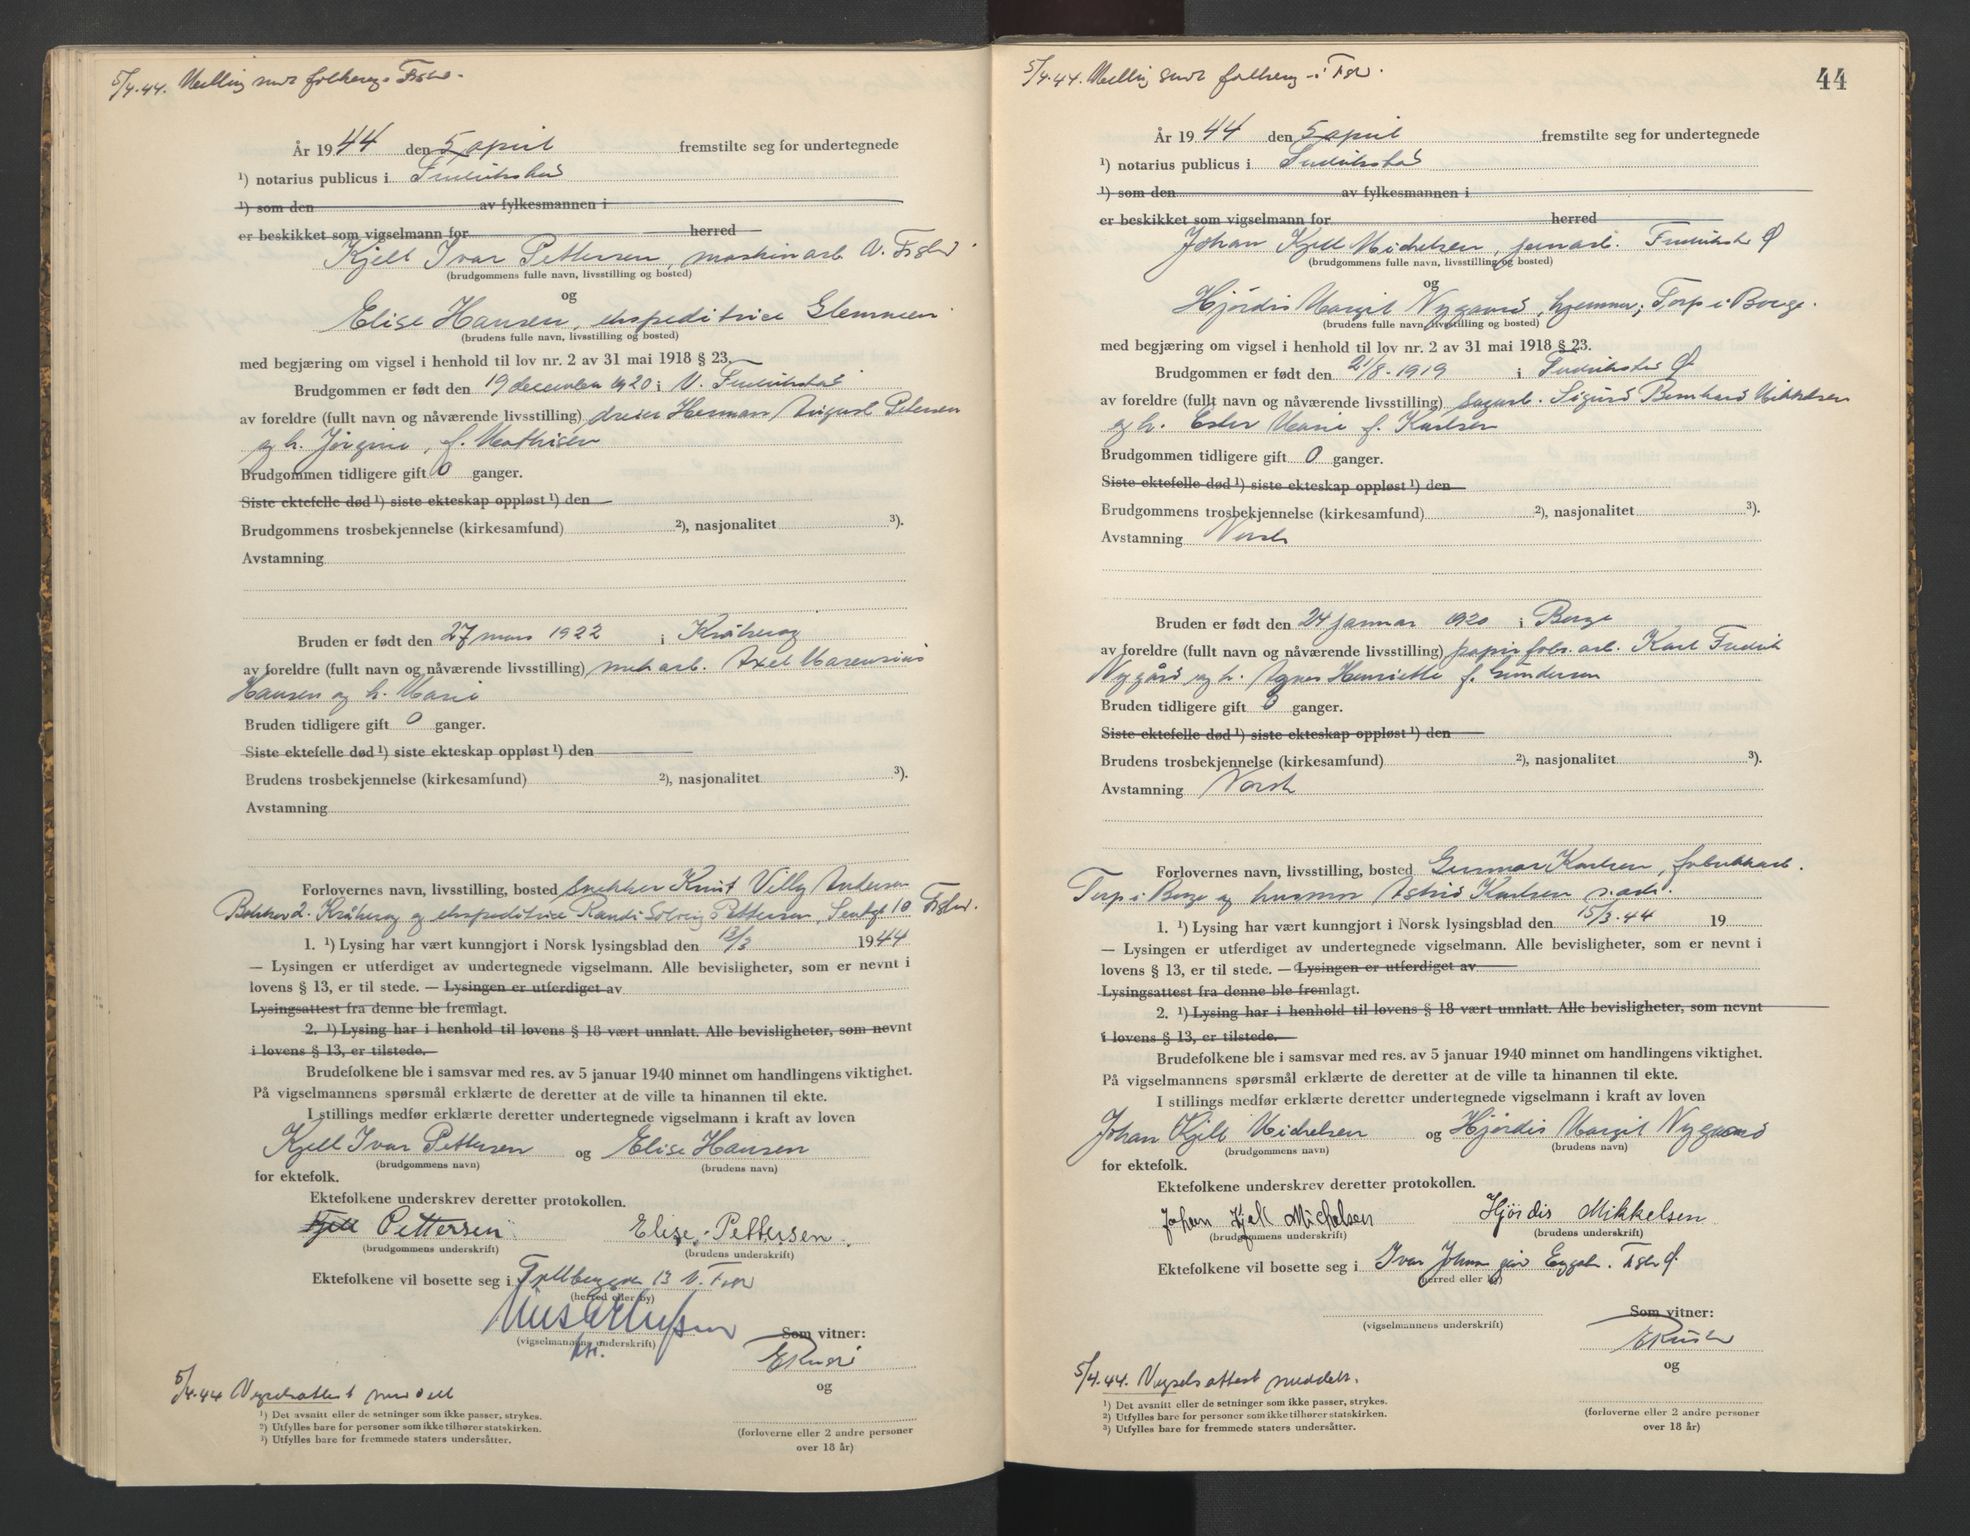 5/4.44. Melling sendt folkereg. Fstad.
År 1944 den 5 april fremstilte seg for undertegnede
¹) notarius publicus i Fredrikstad
¹) som den av fylkesmannen i
er beskikket som vigselmann for herred
Kjell Ivar Pettersen, maskinarb. V. Fstad
(brudgommens fulle navn, livsstilling og bosted)
og
Elise Hansen, ekspeditrice Glemmen
(brudens fulle navn, livsstilling og bosted)
med begjæring om vigsel i henhold til lov nr. 2 av 31 mai 1918 § 23.
Brudgommen er født den 19 december 1920 i V. Fredrikstad
av foreldre (fullt navn og nåværende livsstilling) dreier Herman August Petersen
og h. Jørgine, f. Mathisen
Brudgommen tidligere gift 0 ganger.
Siste ektefelle død ¹) siste ekteskap oppløst ¹) den
Brudgommens trosbekjennelse (kirkesamfund) ²), nasjonalitet ³).
Avstamning
Bruden er født den 27 mars 1922 i Kråkerøy
av foreldre (fullt navn og nåværende livsstilling) mek arb. Axel Marensius
Hansen og h. Marie
Bruden tidligere gift 0 ganger.
Siste ektefelle død ¹) siste ekteskap oppløst ¹) den
Brudens trosbekjennelse (kirkesamfund) ²), nasjonalitet ³).
Avstamning
Forlovernes navn, livsstilling, bosted snekker Knut Villy Andersen
2. Kråkerøy og ekspeditrice Randi Solveig Pettersen, 10 Fstad.
1. ¹) Lysing har vært kunngjort i Norsk lysingsblad den 13/3 1944
— Lysingen er utferdiget av undertegnede vigselmann. Alle bevisligheter, som er nevnt i
lovens § 13, er til stede. — Lysingen er utferdiget av
Lysingsattest fra denne ble fremlagt.
2. ¹) Lysing har i henhold til lovens § 18 vært unnlatt. Alle bevisligheter, som nevnt
i lovens § 13, er tilstede.
Brudefolkene ble i samsvar med res. av 5 januar 1940 minnet om handlingens viktighet.
På vigselmannens spørsmål erklærte de deretter at de ville ta hinannen til ekte.
I stillings medfør erklærte deretter undertegnede vigselmann i kraft av loven
Kjell Ivar Pettersen og Elise Hansen
(brudgommens navn) (brudens navn)
for ektefolk.
Ektefolkene underskrev deretter protokollen.
Kjell Pettersen Elise Pettersen
(brudgommens underskrift) (brudens underskrift)
Ektefolkene vil bosette seg i 13 V. Fstad
(herred eller by)
(vigselmannens underskrift)
Som vitner:
og
5/4.44 Vigselsattest meddelt
¹) Det avsnitt eller de setninger som ikke passer, strykes.
²) Utfylles bare for personer som ikke tilhører statskirken.
³) Utfylles bare for fremmede staters undersåtter.
(forloverne eller 2 andre personer
over 18 år)
44
5/4.44. Melling sendt folkereg. i Fst.
År 1944 den 5 april fremstilte seg for undertegnede
¹) notarius publicus i Fredrikstad
¹) som den av fylkesmannen i
er beskikket som vigselmann for herred
Johan Kjell Michelsen, jernarb. Fredrikstad Ø
(brudgommens fulle navn, livsstilling og bosted)
og
Hjørdis Margit Nygaard, hjemmev., Torp i Borge.
(brudens fulle navn, livsstilling og bosted)
med begjæring om vigsel i henhold til lov nr. 2 av 31 mai 1918 § 23.
Brudgommen er født den 21/8.1919 i Fredrikstad Ø
av foreldre (fullt navn og nåværende livsstilling) sagarb. Sigurd Bernhard Mikkelsen
og h. Ester Marie f. Karlsen
Brudgommen tidligere gift 0 ganger.
Siste ektefelle død ¹) siste ekteskap oppløst ¹) den
Brudgommens trosbekjennelse (kirkesamfund) ²), nasjonalitet ³).
Avstamning Norsk
Bruden er født den 24 januar 1920 i Borge
av foreldre (fullt navn og nåværende livsstilling) papirfabr. arb. Karl Fredrik
Nygård og h. Agnes Henriette f. Gundersen
Bruden tidligere gift 0 ganger.
Siste ektefelle død ¹) siste ekteskap oppløst ¹) den
Brudens trosbekjennelse (kirkesamfund) ²), nasjonalitet ³).
Avstamning Norsk
Forlovernes navn, livsstilling, bosted Gunnar Karlsen, fabrikkarb.
Torp i Borge og husmor Astrid Karlsen s. ads.
1. ¹) Lysing har vært kunngjort i Norsk lysingsblad den 15/3.44 19
— Lysingen er utferdiget av undertegnede vigselmann. Alle bevisligheter, som er nevnt i
lovens § 13, er til stede. — Lysingen er utferdiget av
Lysingsattest fra denne ble fremlagt.
2. ¹) Lysing har i henhold til lovens § 18 vært unnlatt. Alle bevisligheter, som nevnt
i lovens § 13, er tilstede.
Brudefolkene ble i samsvar med res. av 5 januar 1940 minnet om handlingens viktighet.
På vigselmannens spørsmål erklærte de deretter at de ville ta hinannen til ekte.
I stillings medfør erklærte deretter undertegnede vigselmann i kraft av loven
Johan Kjell Michelsen og Hjørdis Margit Nygaard
(brudgommens navn) (brudens navn)
for ektefolk.
Ektefolkene underskrev deretter protokollen.
Johan Kjell Michelsen Hjørdis Mikkelsen
(brudgommens underskrift) (brudens underskrift)
Ektefolkene vil bosette seg i Ivar Fstad Ø.
(herred eller by)
(vigselmannens underskrift)
Som vitner:
og
5/4.44. Vigselsattest meddelt.
¹) Det avsnitt eller de setninger som ikke passer, strykes.
²) Utfylles bare for personer som ikke tilhører statskirken.
³) Utfylles bare for fremmede staters undersåtter.
(forloverne eller 2 andre personer
over 18 år)